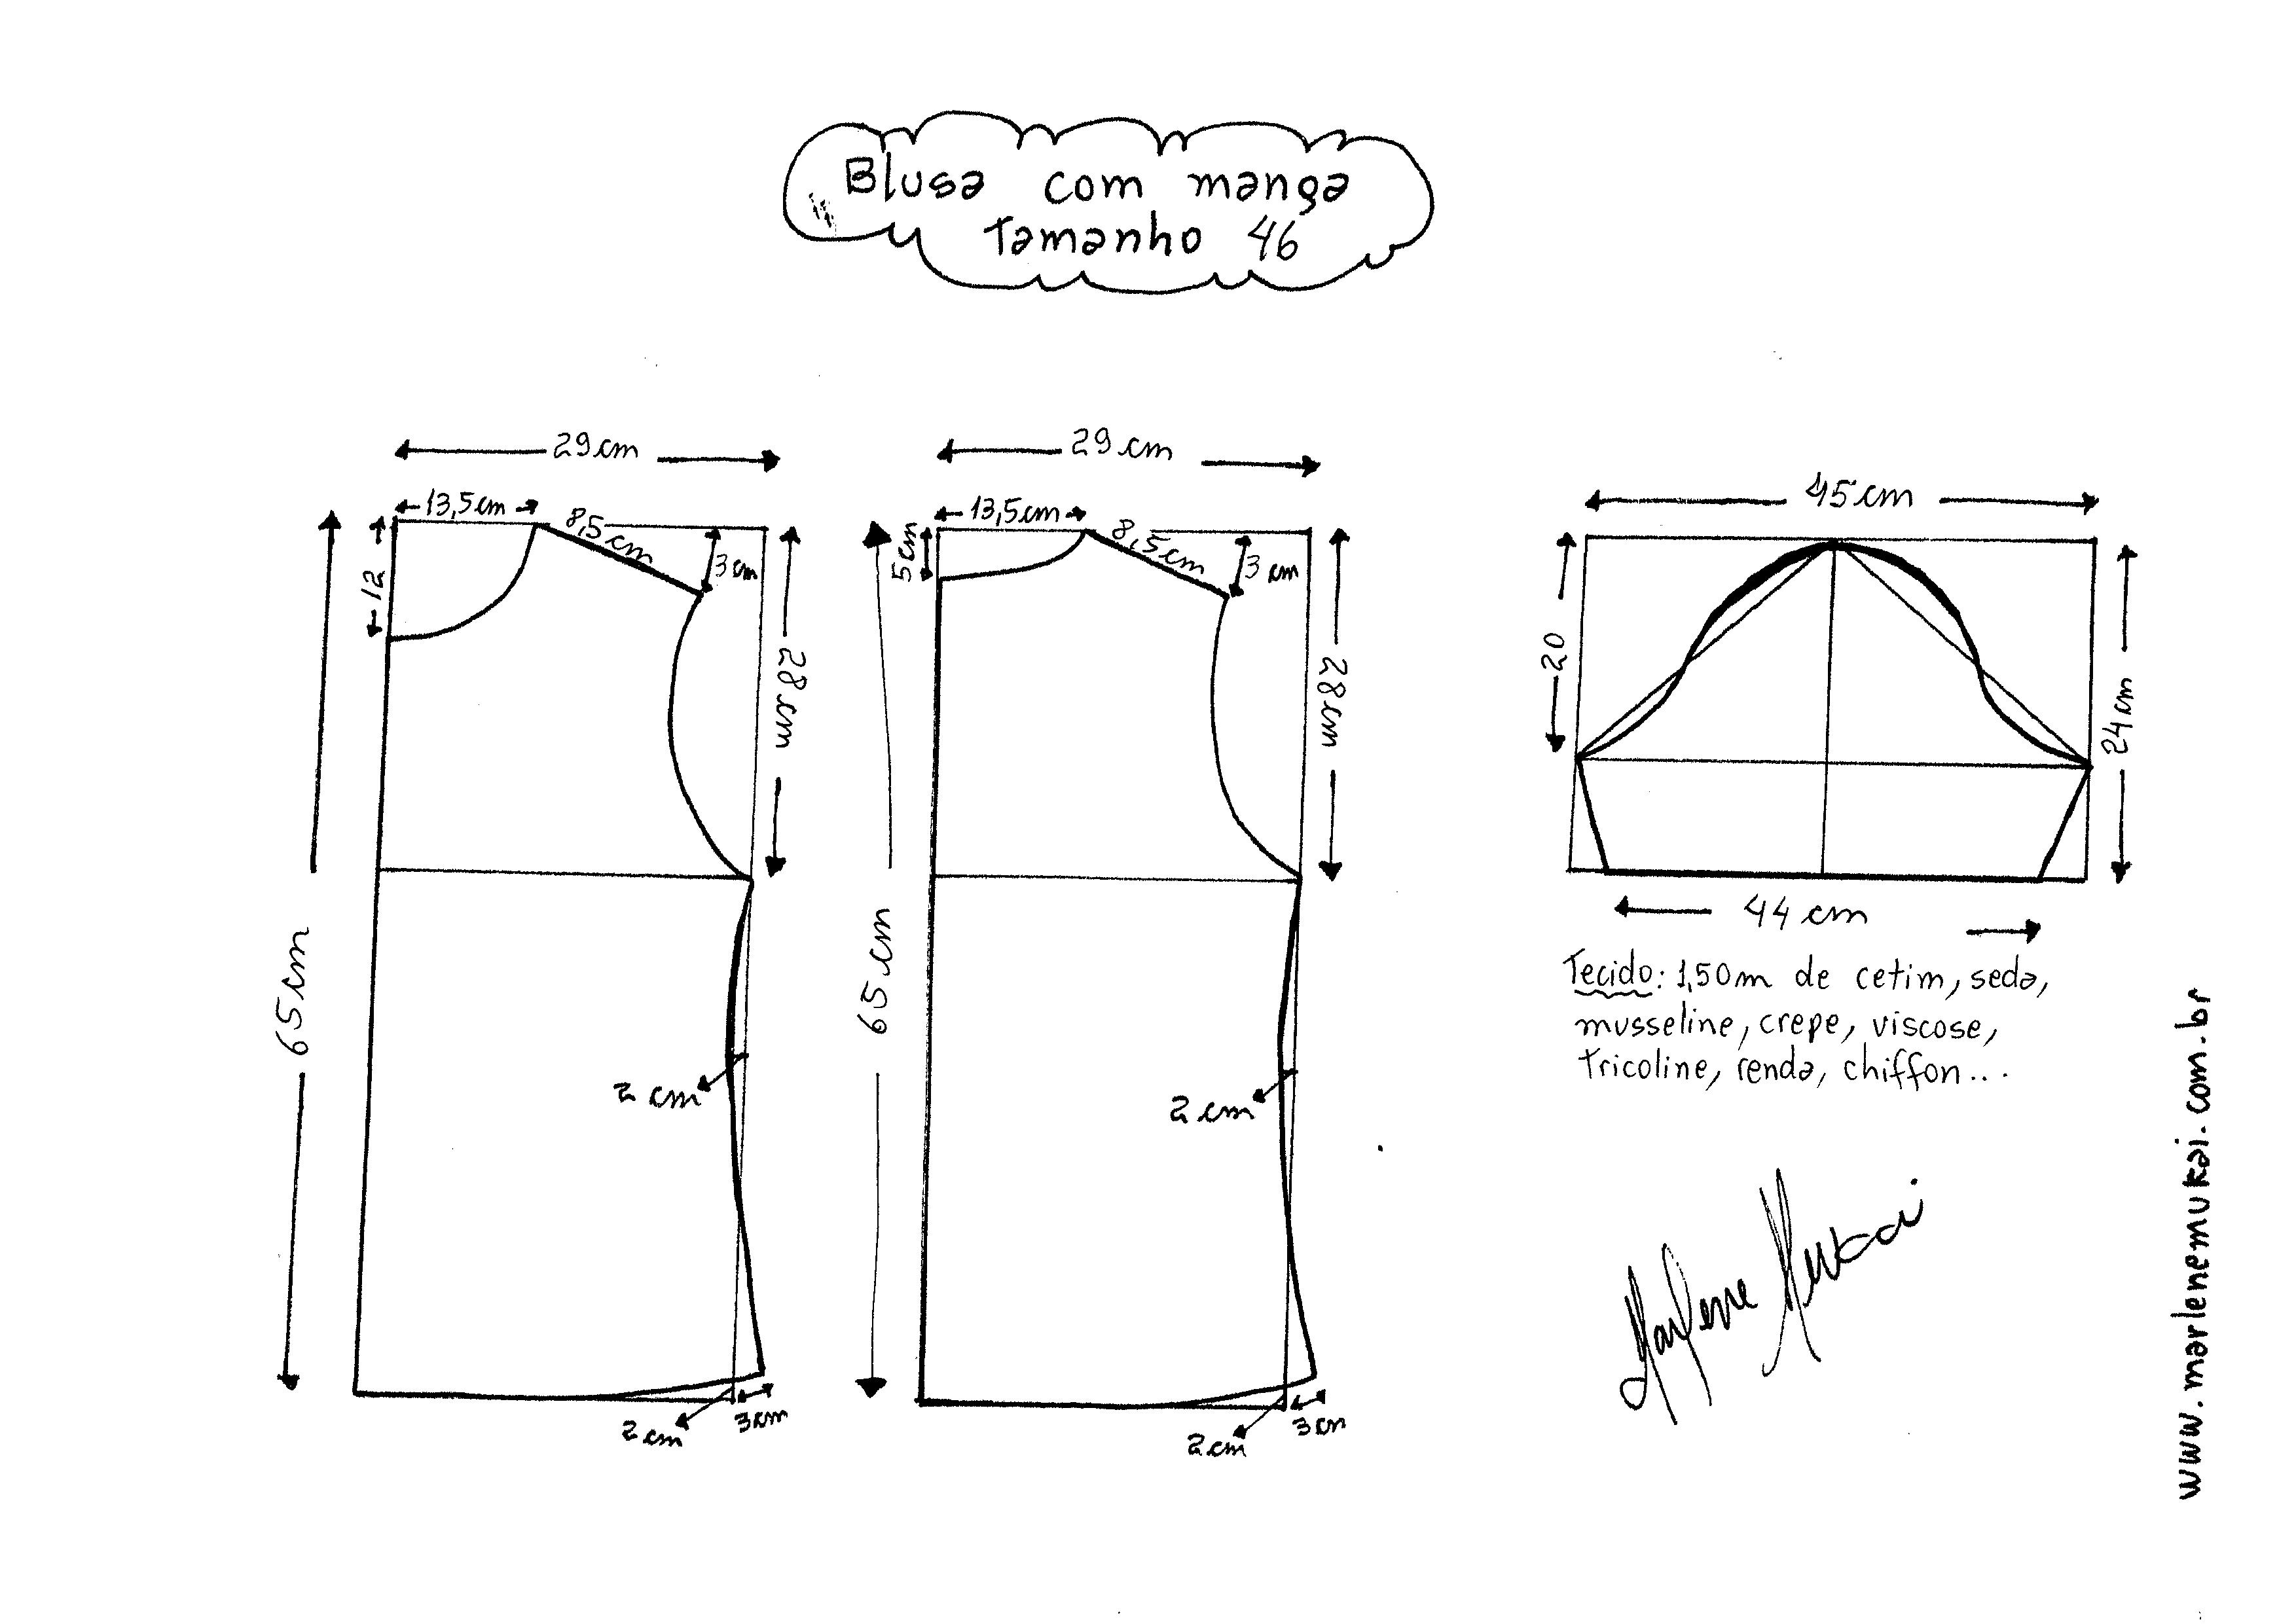 Blusa com manga
Tamanho 46
29 cm
13,5 cm
8,5 cm
3 cm
12
28 cm
65 cm
2 cm
2 cm
3 cm
29 cm
13,5 cm
8,5 cm
3 cm
5 cm
28 cm
65 cm
2 cm
2 cm
3 cm
45 cm
20
24 cm
44 cm
Tecido: 1,50 m de cetim, seda,
musseline, crepe, viscose,
tricoline, renda, chiffon...
Marlene Mukai
www.marlenemukai.com.br